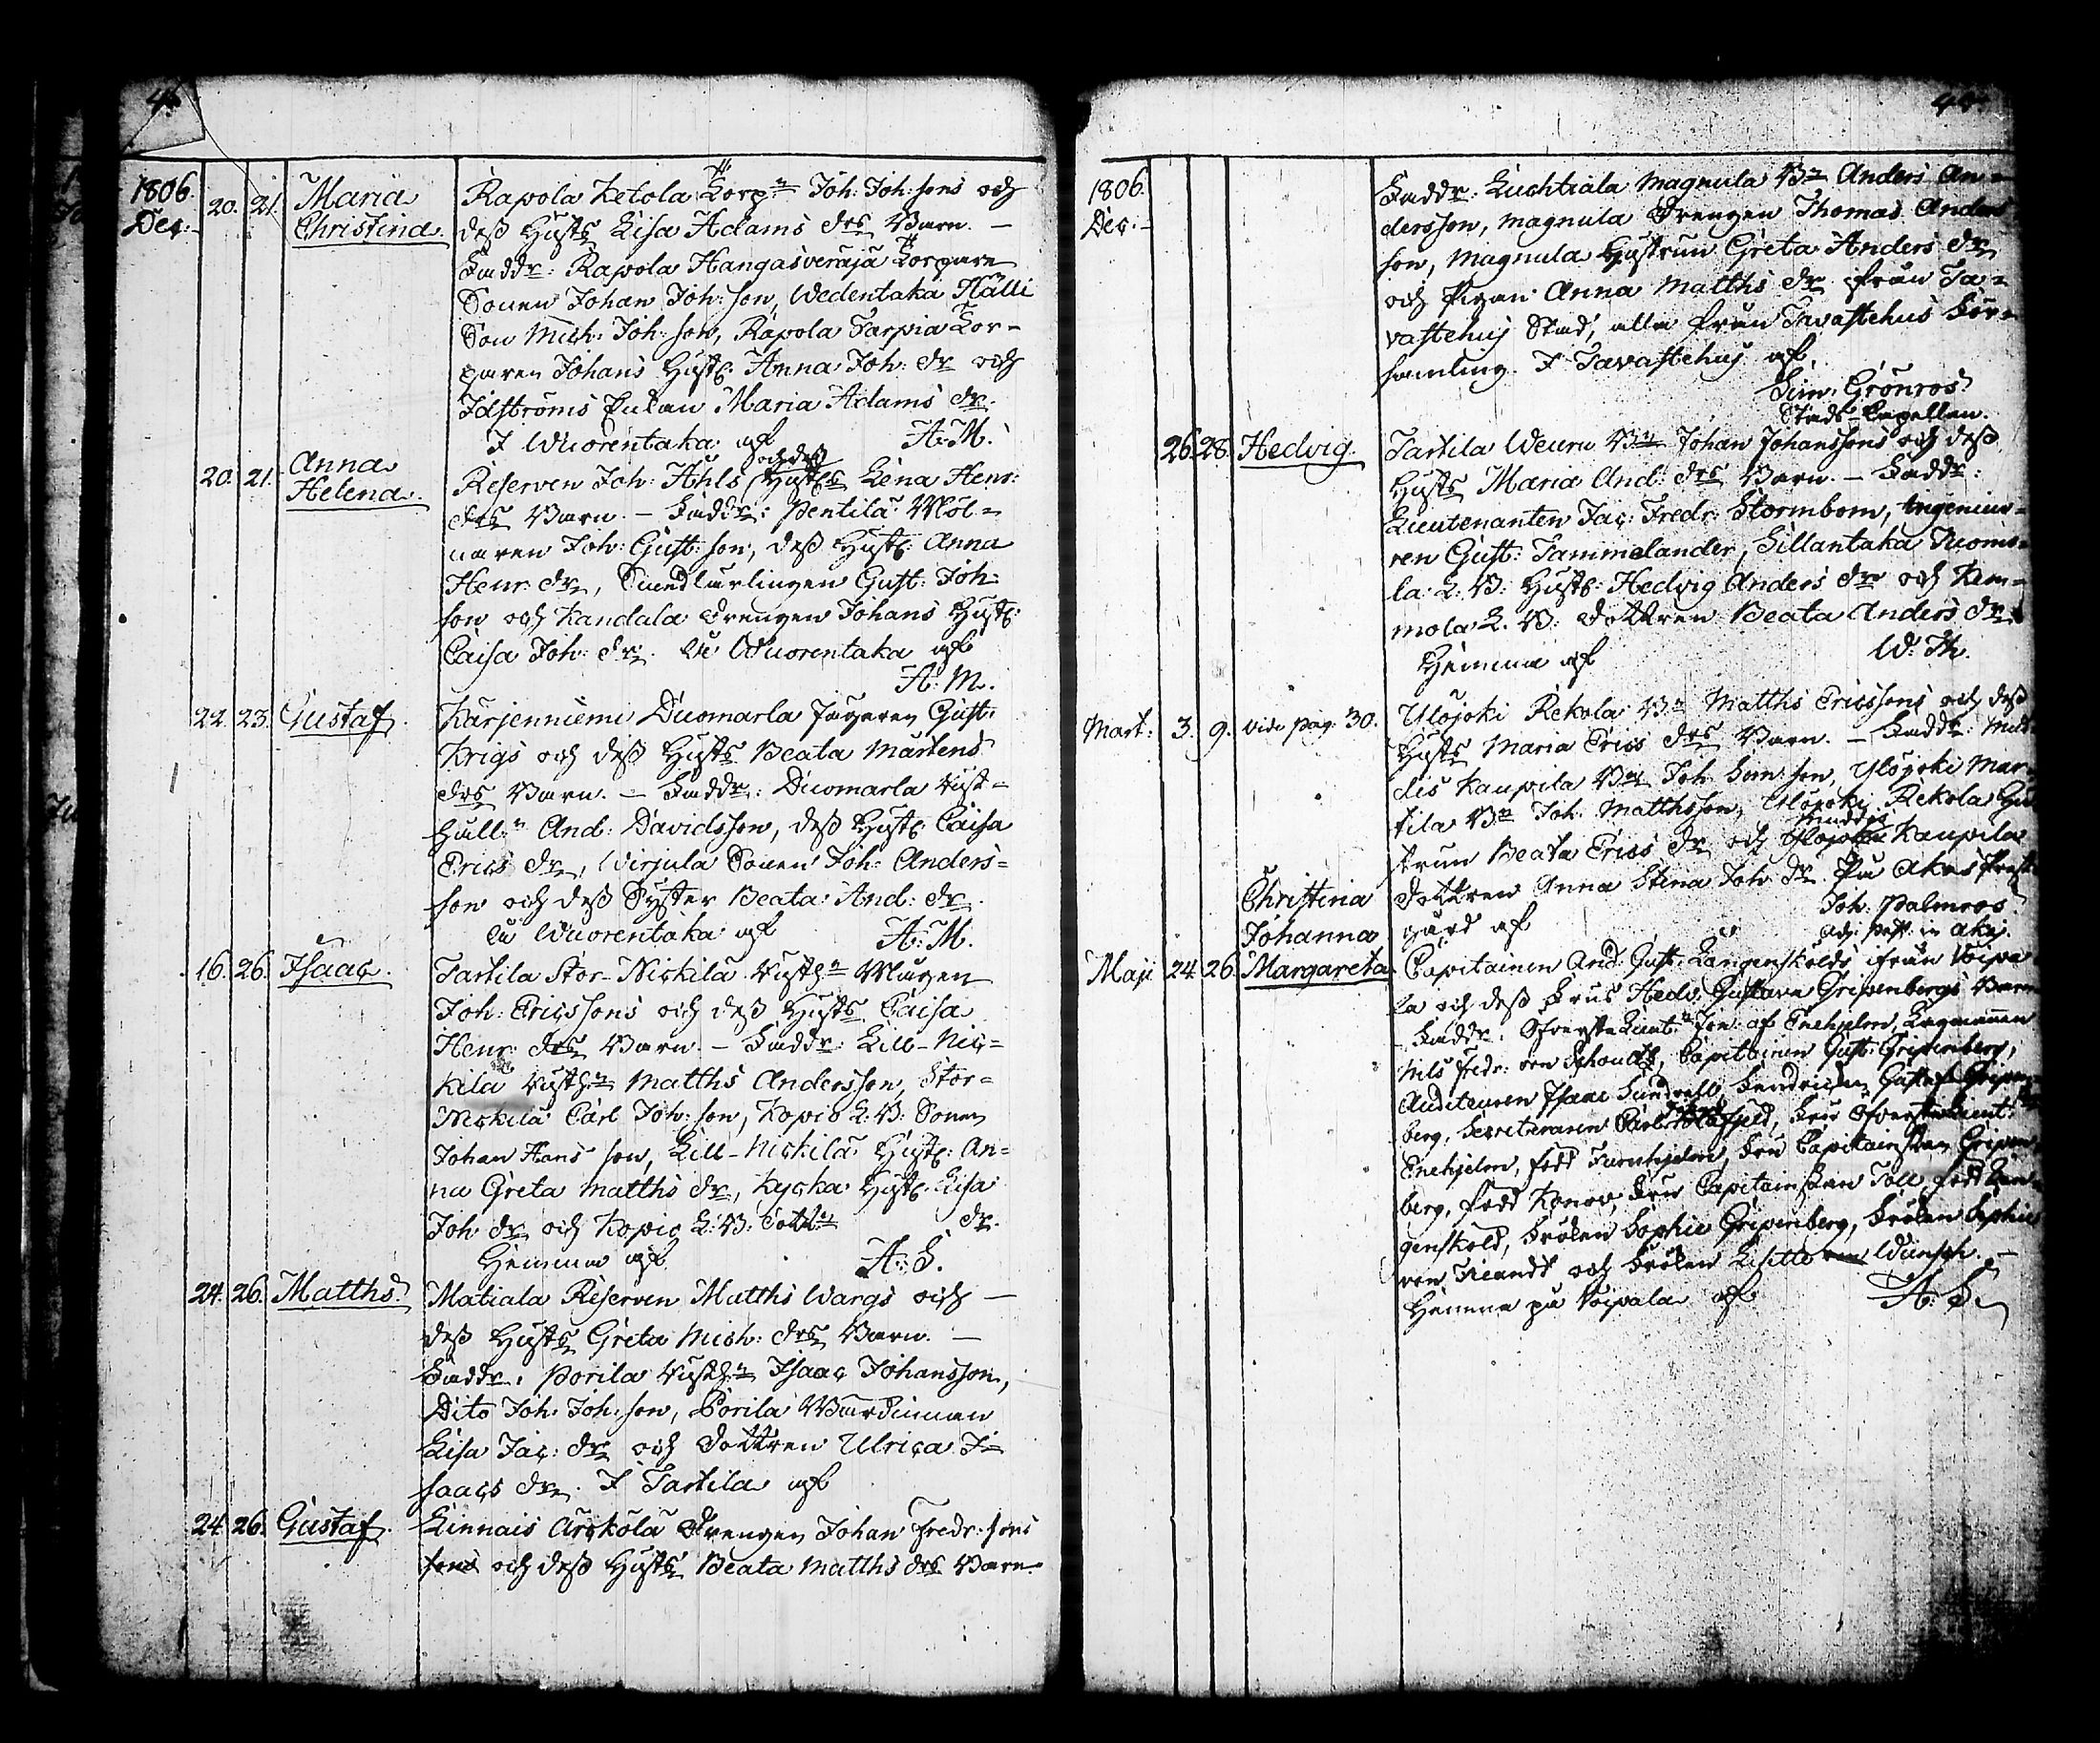 1806. Dec: 20. 21. Maria Rapola Ketola Torp:n Joh: Joh:sons och
Christina. dess Hust:s Lisa Adams drs Barn. –
Faddr: Rapola Hangasveräjä Torpare
Sonen Johan Joh:son, Wedentaka Hälli
Son Mich: Joh:son, Rapola Tarpia Tor-
paren Johans Hust: Anna Joh: dr och
Idströms Enkan Maria Adams dr.
I Wuorentaka af A: M.
20. 21. Anna Helena. Reserven Joh: Ahls och dess Hust:s Lena Henr:
drs Barn. – Faddr: Pentilä Möl-
naren Joh: Gust:son, dess Hust: Anna
Henr: dr, Sämdlärlingen Gust: Joh:
son och Kandala Drengen Johans Hust:
Caisa Joh: dr. Uti Wuorentaka af
A: M.
22. 23. Gustaf. Karjenniemi Duomarla Jägaren Gust:
Krigs och dess Hust:s Beata Mårtens
drs Barn. – Faddr: Duomarla Rust-
håll:n And: Davidsson, dess Hust: Caisa
Erics dr, Wirjula Sonen Joh: Anders-
son och dess Syster Beata And: dr.
Uti Wuorentaka af A: M.
16. 26. Isaac. Tarttila Stor-Nickilä Rusth:n Mågen
Joh: Ericssons och dess Hust:s Caisa
Henr: drs Barn. – Faddr: Lill-Nic-
kilä Rusth:n Matths Andersson, Stor-
Nickilä Carl Joh:son, Kopio L: B: Sonen
Johan Hans son, Lill-Nickilä Hust: An-
na Greta Matths dr, Kycka Hust: Lisa
Joh dr och Kopio L: B: Dott:n dr.
Hemma af A: S.
24. 26. Matths. Matiala Reserven Matths Wargs och –
dess Hust:s Greta Mich: drs Barn. –
Faddr: Porila Rusth:n Isaac Johansson,
Dito Joh: Joh:son, Porila Wärdinnan
Lisa Jac: dr och Dottren Ulrica I-
saacs dr. I Tarttila af
24. 26. Gustaf. Linnais Arckola Drengen Johan Fredr:sons
sons och dess Hust:s Beata Matths drs Barn
1806. Dec: – Faddr: Luchtiala Magnula B:n Anders An-
dersson, Magnula Drengen Thomas Anders
son, Magnula Hustrun Greta Anders dr
och Pigan Anna Matths dr från Ta-
vastehus Stad, alla från Tavastehus För-
samling. I Tavastehus af
Sim: Grönros
Stads-Capellan.
26. 28. Hedvig. Tarttila Weuru B:n Johan Johanssons och dess
Hust:s Maria And: drs Barn. – Faddr:
Lieutenanten Jac: Fredr: Stormbom, Ingenieu-
ren Gust: Tammelander, Sillantaka Tuomo-
la L: B: Hust: Hedvig Anders dr och Kem-
mola L. B: Dottren Beata Anders dr
Hemma af W: Th.
Mart: 3. 9. Vide pag: 30. Ylöjoki Rekola B:n Matths Ericssons och dess
Hust:s Maria Erics drs Barn. – Faddr:
Kaupila B:n Joh: Sim:son, Ylöjoki Mar-
tila B:n Joh: Matthsson, Ylöjoki Rekola Hus
trun Beata Erics dr och Ylöjoki Kaupila
Christina Dottren Anna Stina Joh dr. På Akas Prest
Johanna gård af Joh: Palmros
Adj: Past: in Akas.
Maji 24 26 Margareta Capitainen And: Gust: Långenskölds ifrån Voipa
la och dess Frus Hedv: Gustava Gripenbergs Barn
– Faddr: Öfverste Lieut:n Jon: af Enehjelm, Lagmannen
Nils Fredr: von Schoultz, Capitainen Gust: Gripenberg,
Auditeuren Isaac Sundvall, Fendricken Gustaf Gripen-
berg, Secreteraren Carl Johan, Fru Öfverste Lieut:n
Enehjelm, född Furuhjelm, Fru Capitainskan Gripen-
berg, född Konow, Fru Capitainskan Toll född Lån-
genskold, Fröken Sophie Gripenberg, Fröken Sophie
von Fieandt och Fröken Lisette von Wunsch. –
Hemma på Voipala af A: S.